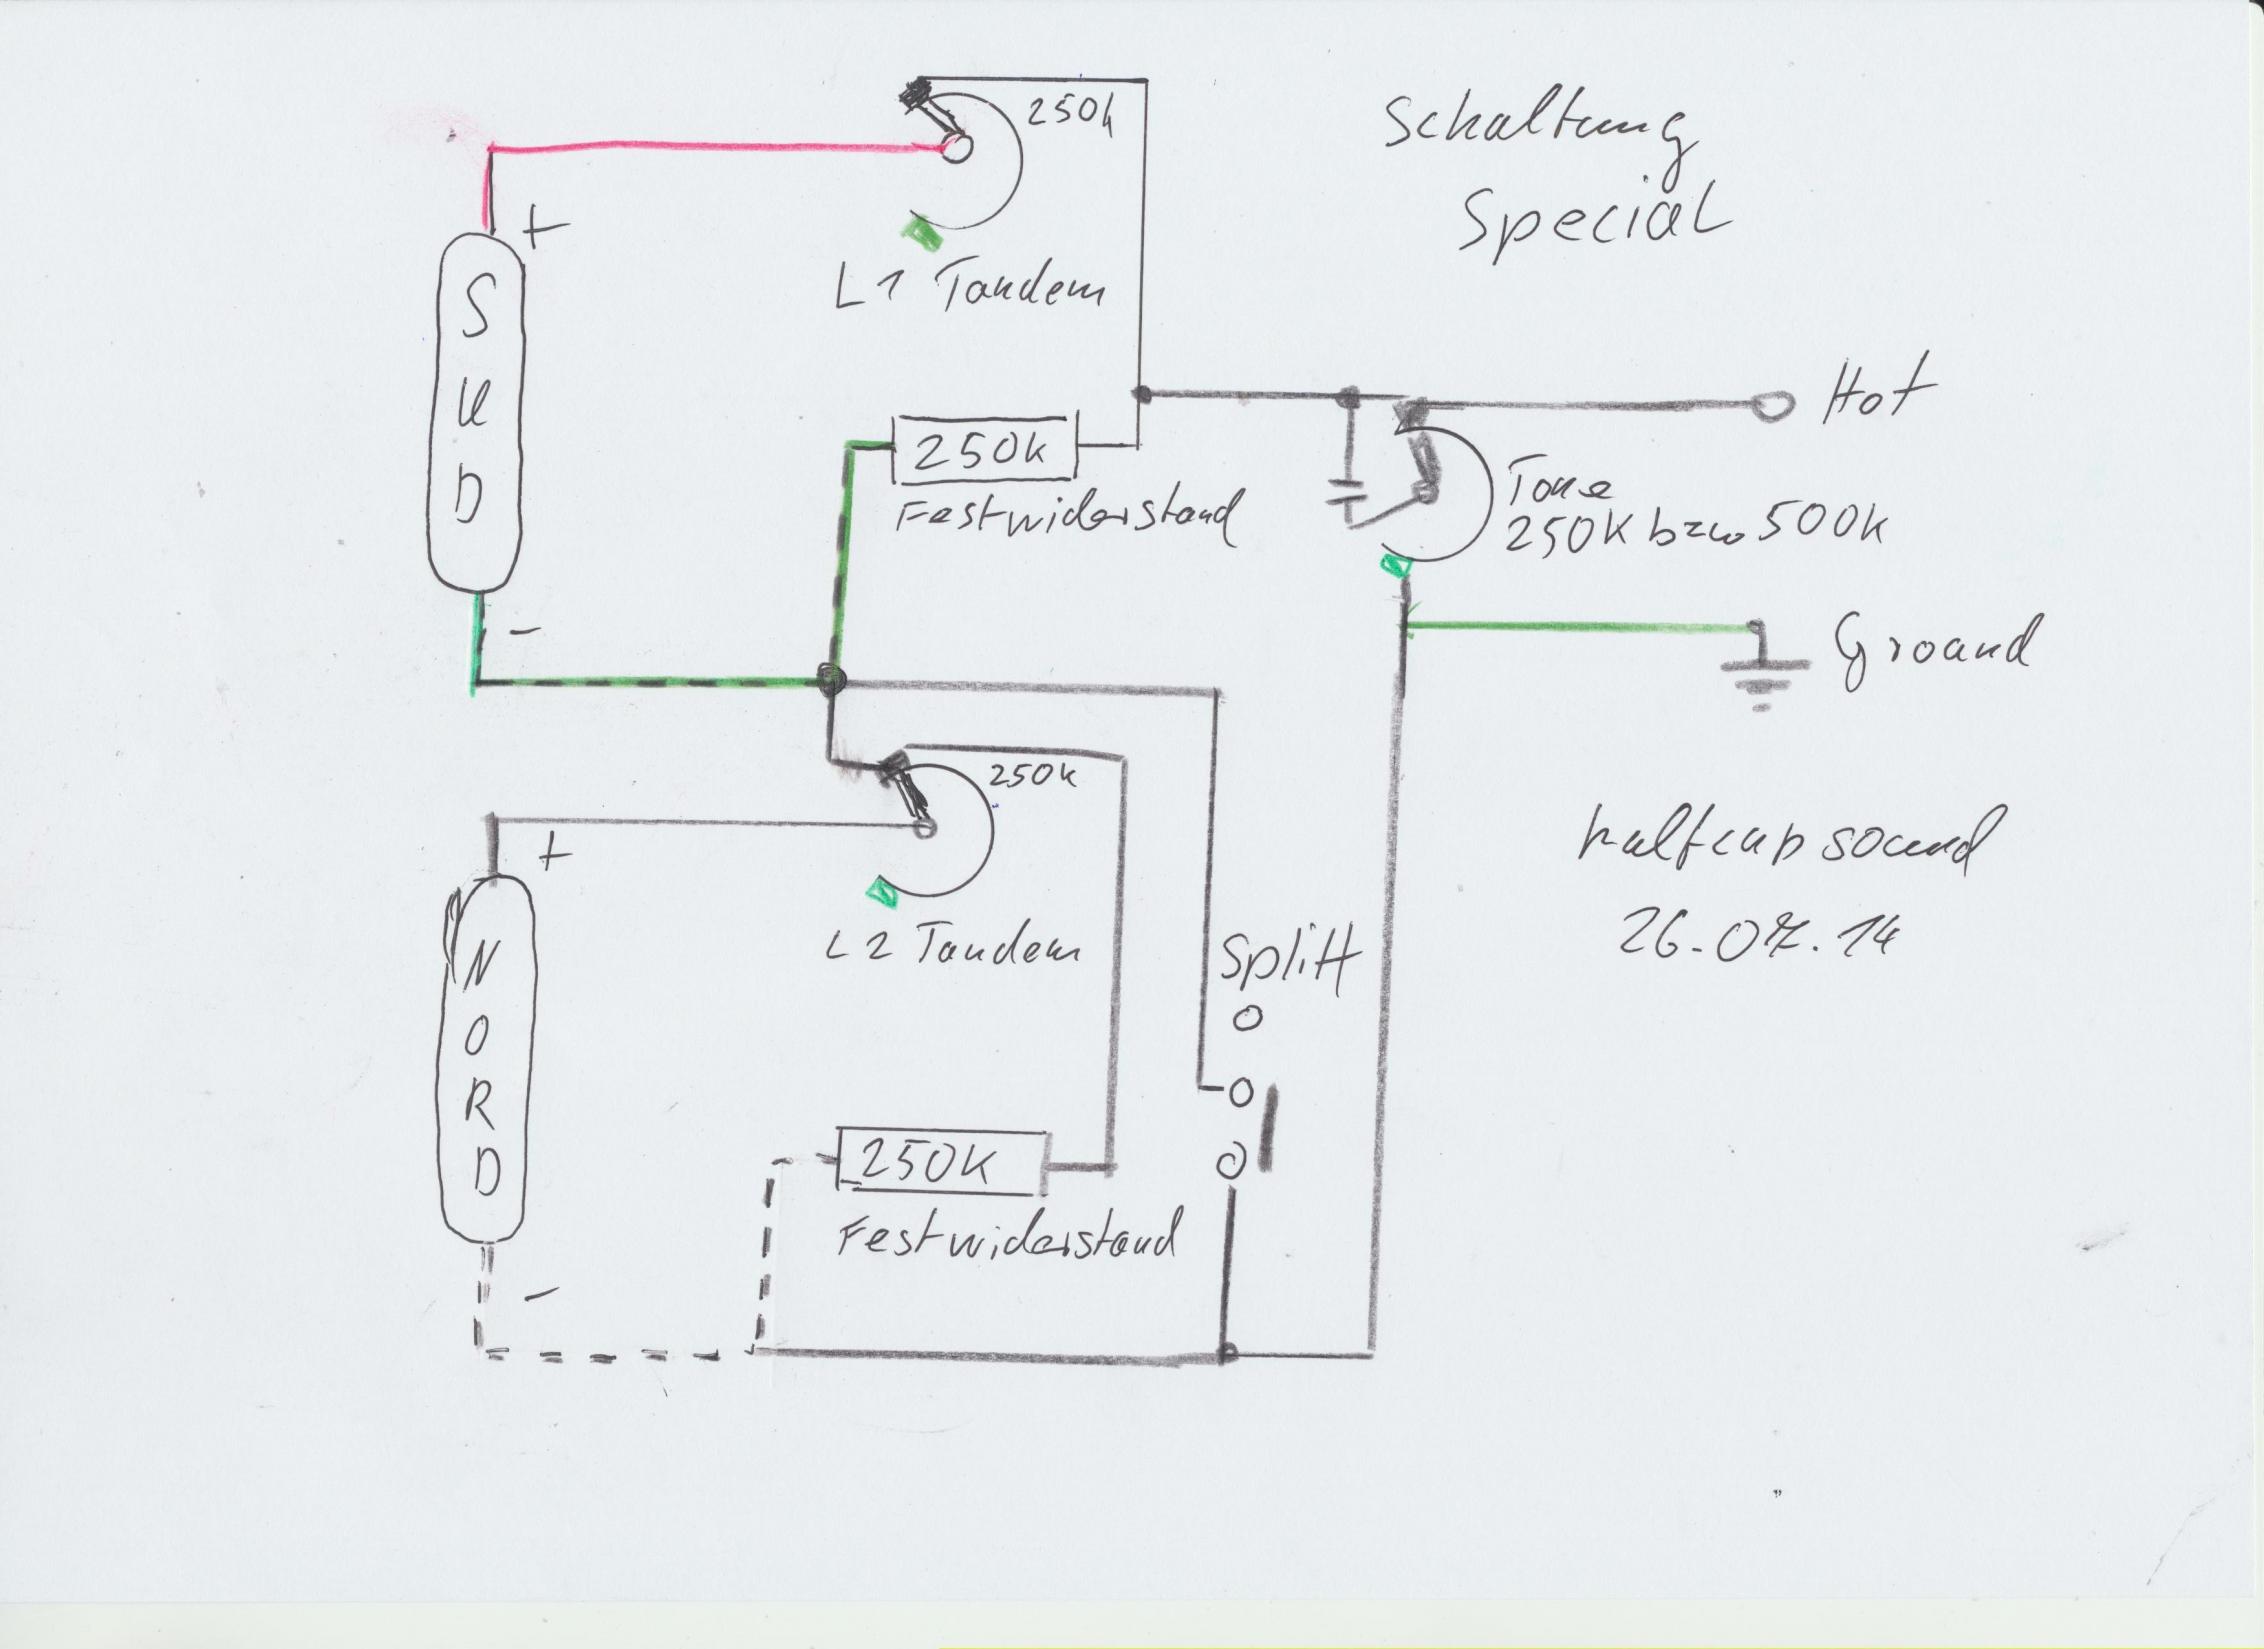 Schaltung
Special
250k
+
SUD
L1 Tandem
Hot
250k
Festwiderstand
Tone
250K bzw 500k
-
Ground
250k
+
NORD
L2 Tandem
Splitt
sound
26.07.14
250K
Festwiderstand
-